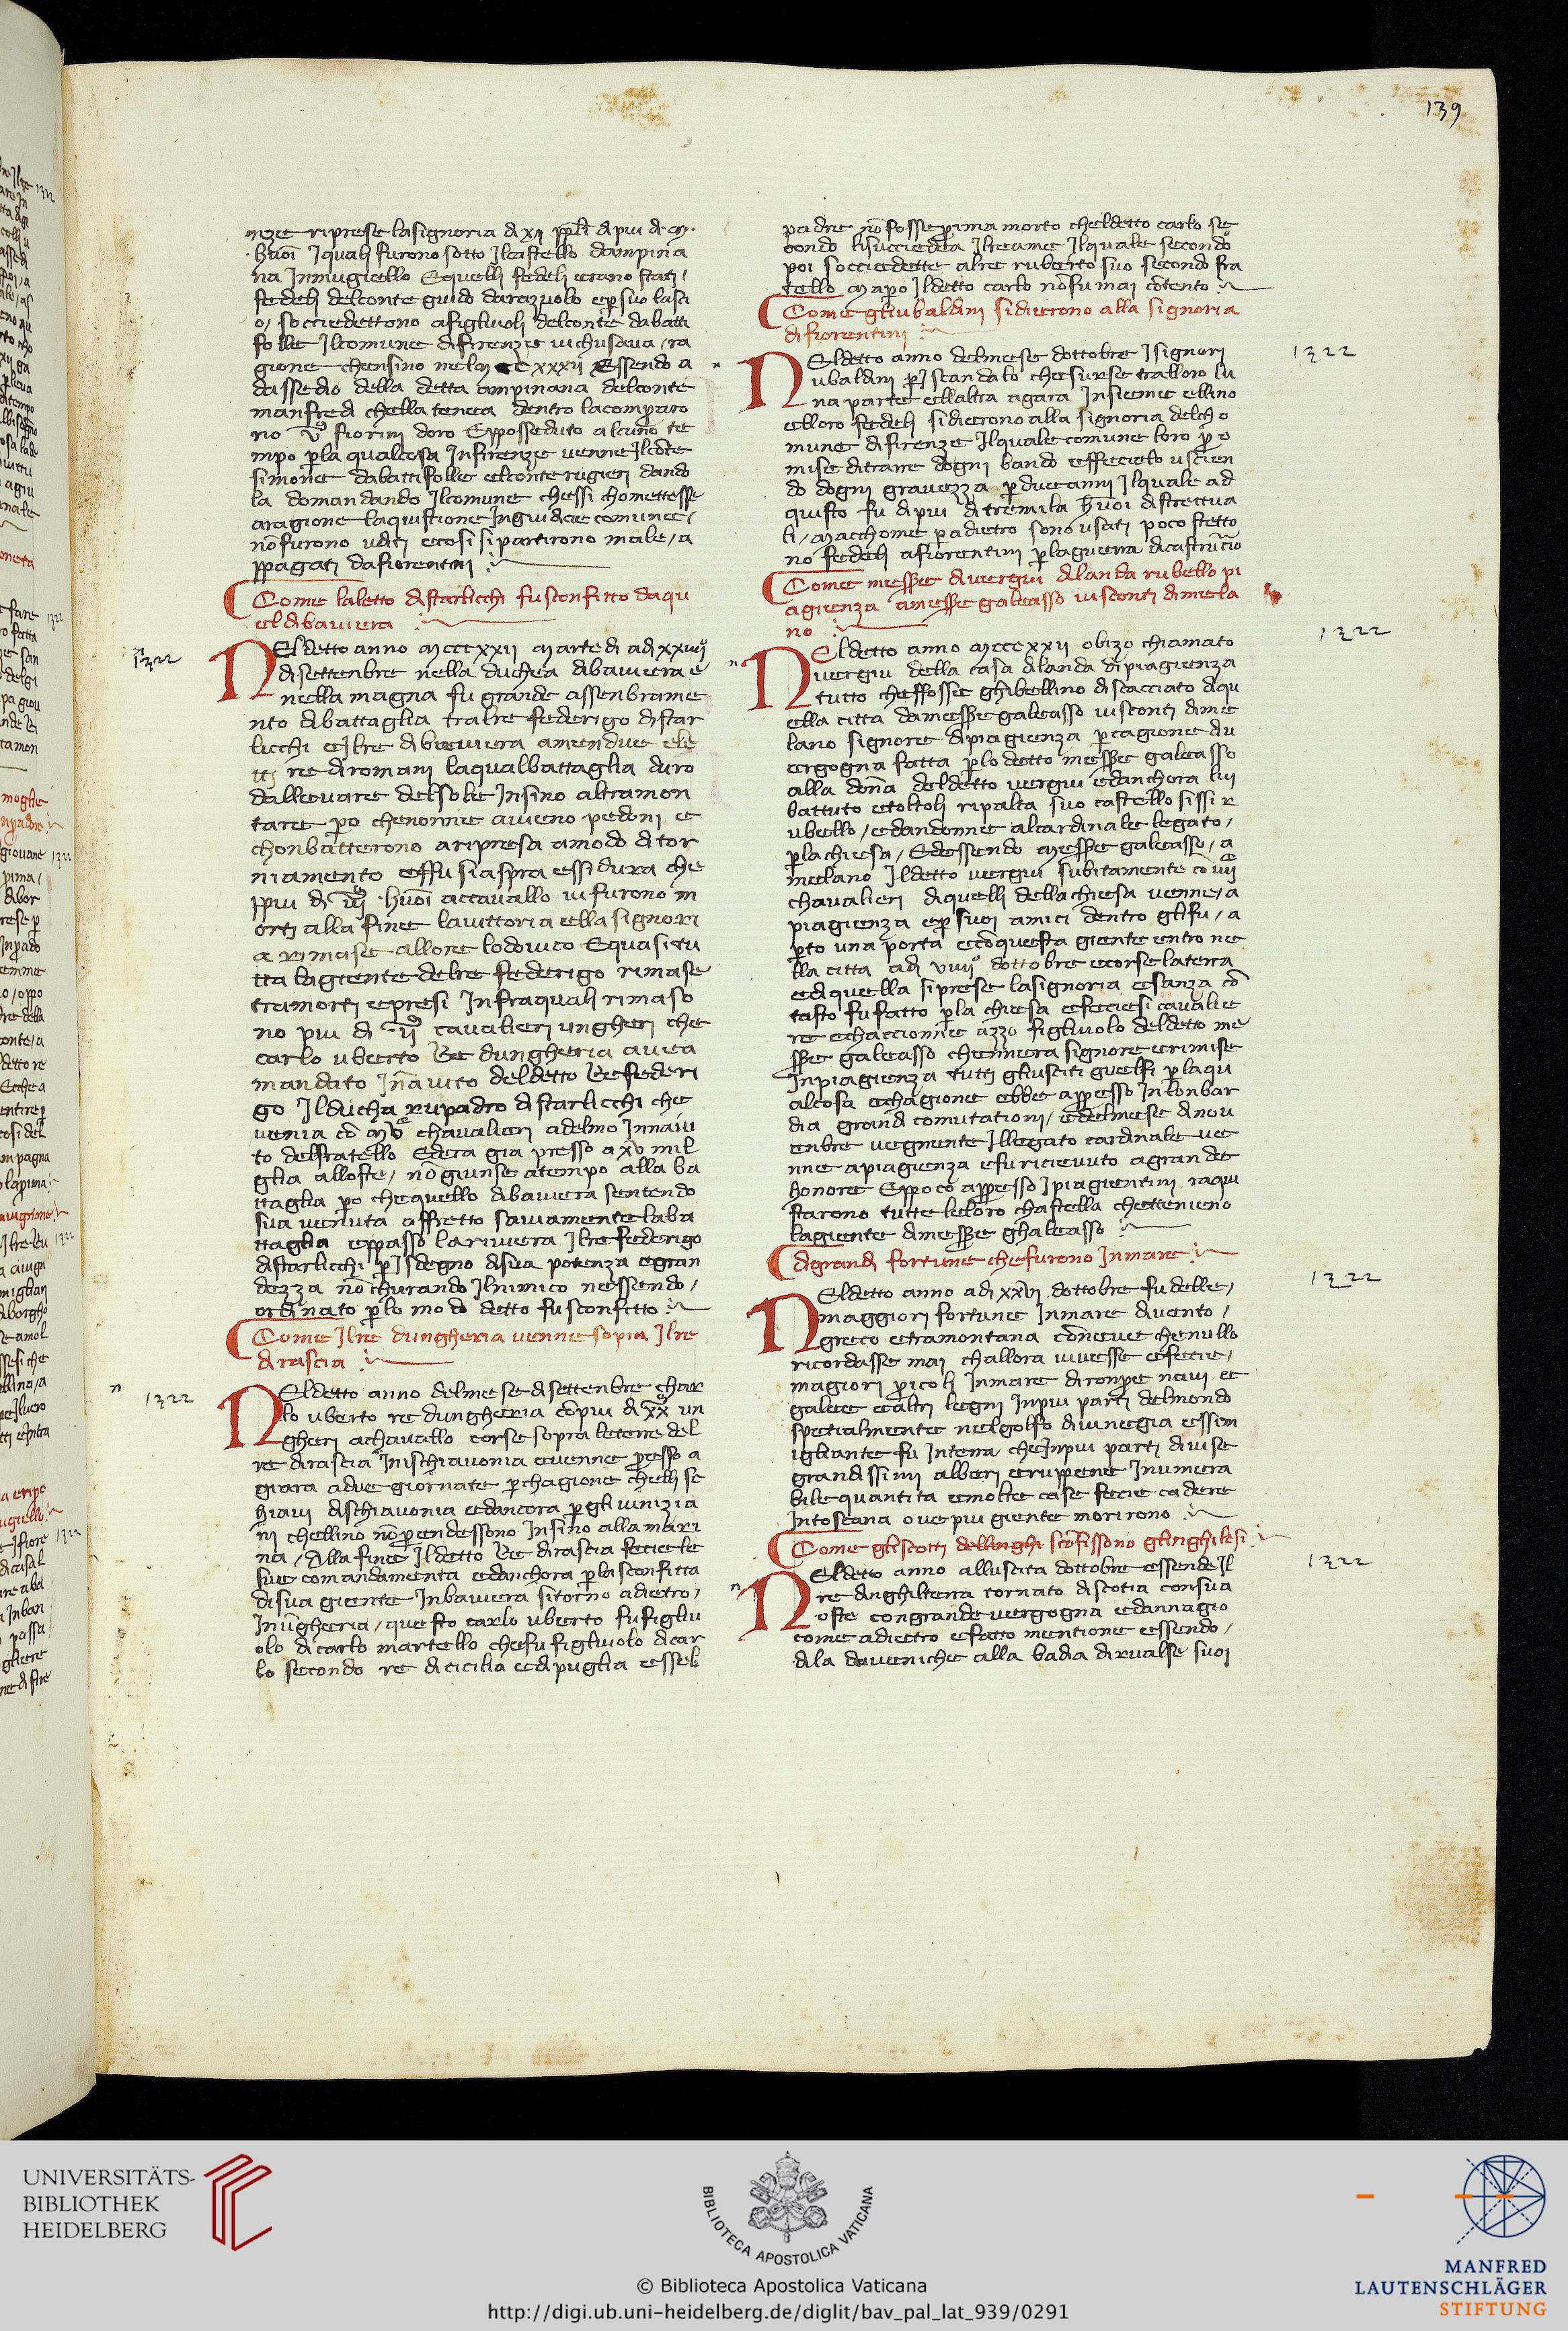 139
nze riprese lasignoria di xij ppľi di piu di .m.
huoi Iquali furono sotto Ilcastello dampina
na Inmugiello Equelli fedeli erano stati /
fedeli delconte guido darazuolo eper suo lasci
o / socciedettono afigliuoli delconte dabatti
folle Ilcomune difirenze vichusava / ra
gione chensino nelm cc xxxij Essendo a
dassedio della detta ampinana delconte
manfredi chella tenea dentro lacomparo
no v̄ fiorini doro Epposseduto alcuno te
mpo p̱la qualcosa Infirenze venne Ilcōte
simone dabattifolle elconte rugieri dando
la domandando Ilcomune chessi chomettesse
aragione laquistione Ingiudicie comune /
nō furono uditi ecosi si partirono male / a
ppagati dafiorentini
Come laletto distarlicchi fusconfitto daqu
el dibaviera
1322
Neldetto anno mcccxxij marte di adi xxviij
disettenbre nella duchea dibaviera e
nella magna fu grande assenbrame
nto dibattaglia tralre federigo distar
licchi eIlre dibaviera amendue ele
tti re diromani laqualbattaglia duro
dallevare delsole Insino altramon
tare p̱o chenonne aveno pedoni e
chonbatterono aripresa amodo di tor
niamento effu siaspra essi dura che
ppiu di iiij huoi accavallo vi furono m
orti alla fine lavittoria ella signori
a rimase allore lodovico Equasi tu
tta lagiente delre federigo rimase
tramorti epresi Infraquali rimaso
no piu di ij cavalieri ungheri che
carlo uberto Re dungheria avea
mandato Inaiuto deldetto Re federi
go Ilducha rupadro distarlicchi che
venia cō mv chavalieri adelmo Innaiu
to delfratello Edera gia presso axv mil
glia alloste / nō giunse atempo alla ba
ttaglia p̱o chequello dibaviera sentendo
sua venuta affretto saviamente laba
ttaglia eppasso lariviera Ilre federigo
distarlicchi p̱ Isdegno disua potenza egran
dezza nō churando Ilnimico nessendo /
ordinato p̱lo modo detto fu sconfitto
Come Ilre dungheria venne sopra Ilre
di rascia
1322
Neldetto anno delmese disettenbre char
lo uberto re dungheria cōpiu di xx un
gheri achavallo corse sopra leterre del
re dirascia Inischiavonia evenne p̱resso a
giara adue giornate p̱chagione chelli sc
hiavi dischiavonia edancora p̱gli vinizia
ni chellino nō p̱rendessono Insino alla mari
na / Alla fine Ildetto Re dirascia feciele
sue comandamenta edanchora p̱lasconfitta
disua giente Inbaviera sitorno adietro /
Inūgheria / questo carlo uberto fufigliu
olo dicarlo martello chefu figliuolo dicar
lo secondo re dicicilia edipuglia essel
padre nō fosse p̱rima morto cheldetto carlo se
condo lisucciedea Ilreame Ilquale secondo
poi socciedette alre ruberto suo secondo fra
tello map̱o Ildetto carlo nō fu mai cōtento
Come gliubaldini sidierono alla signoria
di fiorentini
1322
Neldetto anno delmese dottobre Isignori
ubaldini p̱ Iscandalo chesurse tralloro lu
na parte ellaltra agara Insieme ellino
elloro fedeli sidierono alla signoria delcho
mune difirenze Ilquale comune loro p̱ro
mise ditrarre dogni bando effecielo uscien
do dogni gravezza p̱dueanni Ilquale ad
quisto fu dipiu ditremila huoi distrettua
li / macchome p̱adietro sono usati poco stetto
no fedeli afiorentini p̱laguerra dicastrūcio
Come messeṟe divergiu dilanda rubello pi
agienza amesseṟe galeasso visconti dimela
no
1322
Neldetto anno mcccxxij obizo chiamato
vergiu della casa dilanda dipiagienza
tutto cheffosse ghibellino discacciato diqu
ella citta damesseṟe galeasso visconti dime
lano signore dipiagienza p̱cagione div
ergogna fatta p̱lo detto messeṟe galeasso
alla donā deldetto vergiu edanchora lui
battuto etoltoli ripalta suo castello sissi r
ubello / edandonne alcardinale legato /
p̱lachiesa / Edessendo messeṟe galeasso / a
melano Ildetto vergiu subitamente cō iiij
chavalieri diquelli dellachiesa venne / a
piagienza ep̱ suoi amici dentro glifu / a
p̱to una porta ecōquesta giente entro ne
lla citta adi viiij dottobre ecorse laterra
edi quella siprese lasignoria esanza cō
tasto fu fatto p̱la chiesa efeciesi cavalie
re echaccionne azzo figliuolo deldetto me
sseṟe galeasso chennera signore erimise
Inpiagienza tutti gliusciti guelfi p̱laqu
alcosa echagione ebbe appresso Inlonbar
dia grandi comutationi / edelmese dinov
enbre vegnente Illegato cardinale ve
nne apiagienza efu ricievuto agrande
honore Eppoco appresso Ipiagientini raqui
starono tutte leloro chastella chettenieno
lagiente dimesseṟe ghaleasso
Digrandi fortune chefurono Inmare
1322
Neldetto anno adi xxvi dottobre fu delle /
maggiori fortune Inmare divento /
greco etramontana cōneve chenullo
ricordasse mai challora vivesse efecie /
magiori p̱icoli Inmare dironpe navi e
galee ealtri legni Inpiu parti delmondo
spetialmente nelgolfo divinegia essim
igliante fu Interra cheInpiu parti divise
grandissimi alberi eruppene Inumera
bile quantita emolte case fecie cadere
Intoscana ove piu giente morirono
Come gliscotti dellinghi scōfissono glinghilesi
1322
Neldetto anno alluscita dottobre essendo Il
re dinghilterra tornato discotia consua
oste congrande vergogna edannagio
come adietro efatto mentione essendo /
dila daveniche alla badia dirualse suoi
UNIVERSITÄTS-
BIBLIOTHEK
HEIDELBERG
BIBLIOTECA APOSTOLICA VATICANA
MANFRED
LAUTENSCHLÄGER
STIFTUNG
© Biblioteca Apostolica Vaticana
http://digi.ub.uni-heidelberg.de/diglit/bav_pal_lat_939/0291